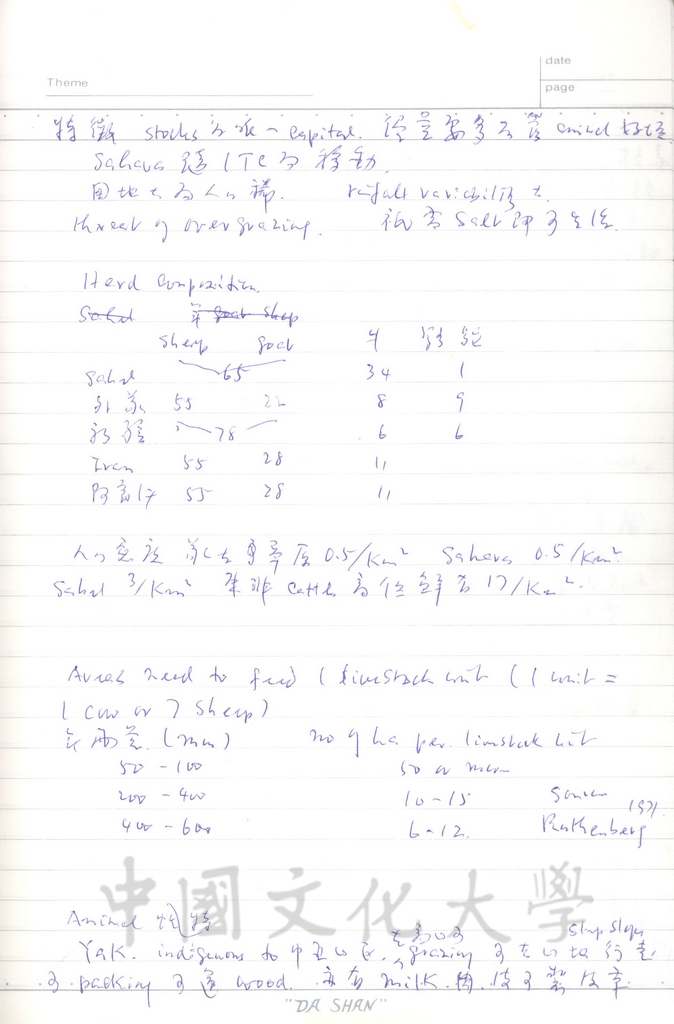 date
Theme
page
特徵 stocks 為唯一 capital. 量要多 animal
Sahara 隨 ITC 為移動.
用地大為人口稀. rainfall variability 大.
threat of overgrazing. 祇需 salt 即可生活.
Herd composition
Sahel 羊 goat sheep
sheep goat 牛 駱駝
Sahel 65 34 1
外蒙 55 22 8 9
新疆 78 6 6
Iran 55 28 11
阿富汗 55 28 11
人口密度 0.5/Km² Sahara 0.5/Km²
Sahel 3/Km² 東非 cattle 17/Km².
Areas need to feed 1 livestock unit (1 unit =
1 cow or 7 sheep)
年雨量 (mm) no of ha per. livestock unit
50 - 100 50 or more
200 - 400 10 - 15
400 - 600 6 - 12. Ruthenberg 1971
中國文化大學
Animal 特
Yak. indigenous to 中亞山區. grazing 可在 steep slope 行走
可 packing 可 wood. 亦有 milk. 肉. 皮可製皮革.
"DA SHAN"